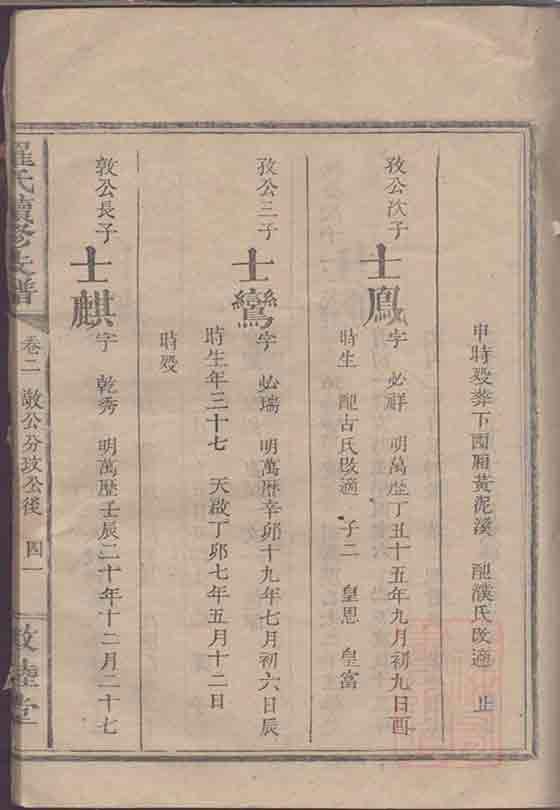 申時歿葬下西廂黃泥溪 配濮氏改適 止
孜公次子 士鳳 字 必祥 明萬歷丁丑十五年九月初九日酉
時生 配古氏改適 子二 皇恩 皇富
孜公三子 士鸞 字 必瑞 明萬歷辛卯十九年七月初六日辰
時生年三十七 天啟丁卯七年五月十二日
時歿
敦公長子 士麒 字 乾秀 明萬歷壬辰二十年十二月二十七
羅氏續修支譜 卷二 敬公分孜公後 四一 敦睦堂